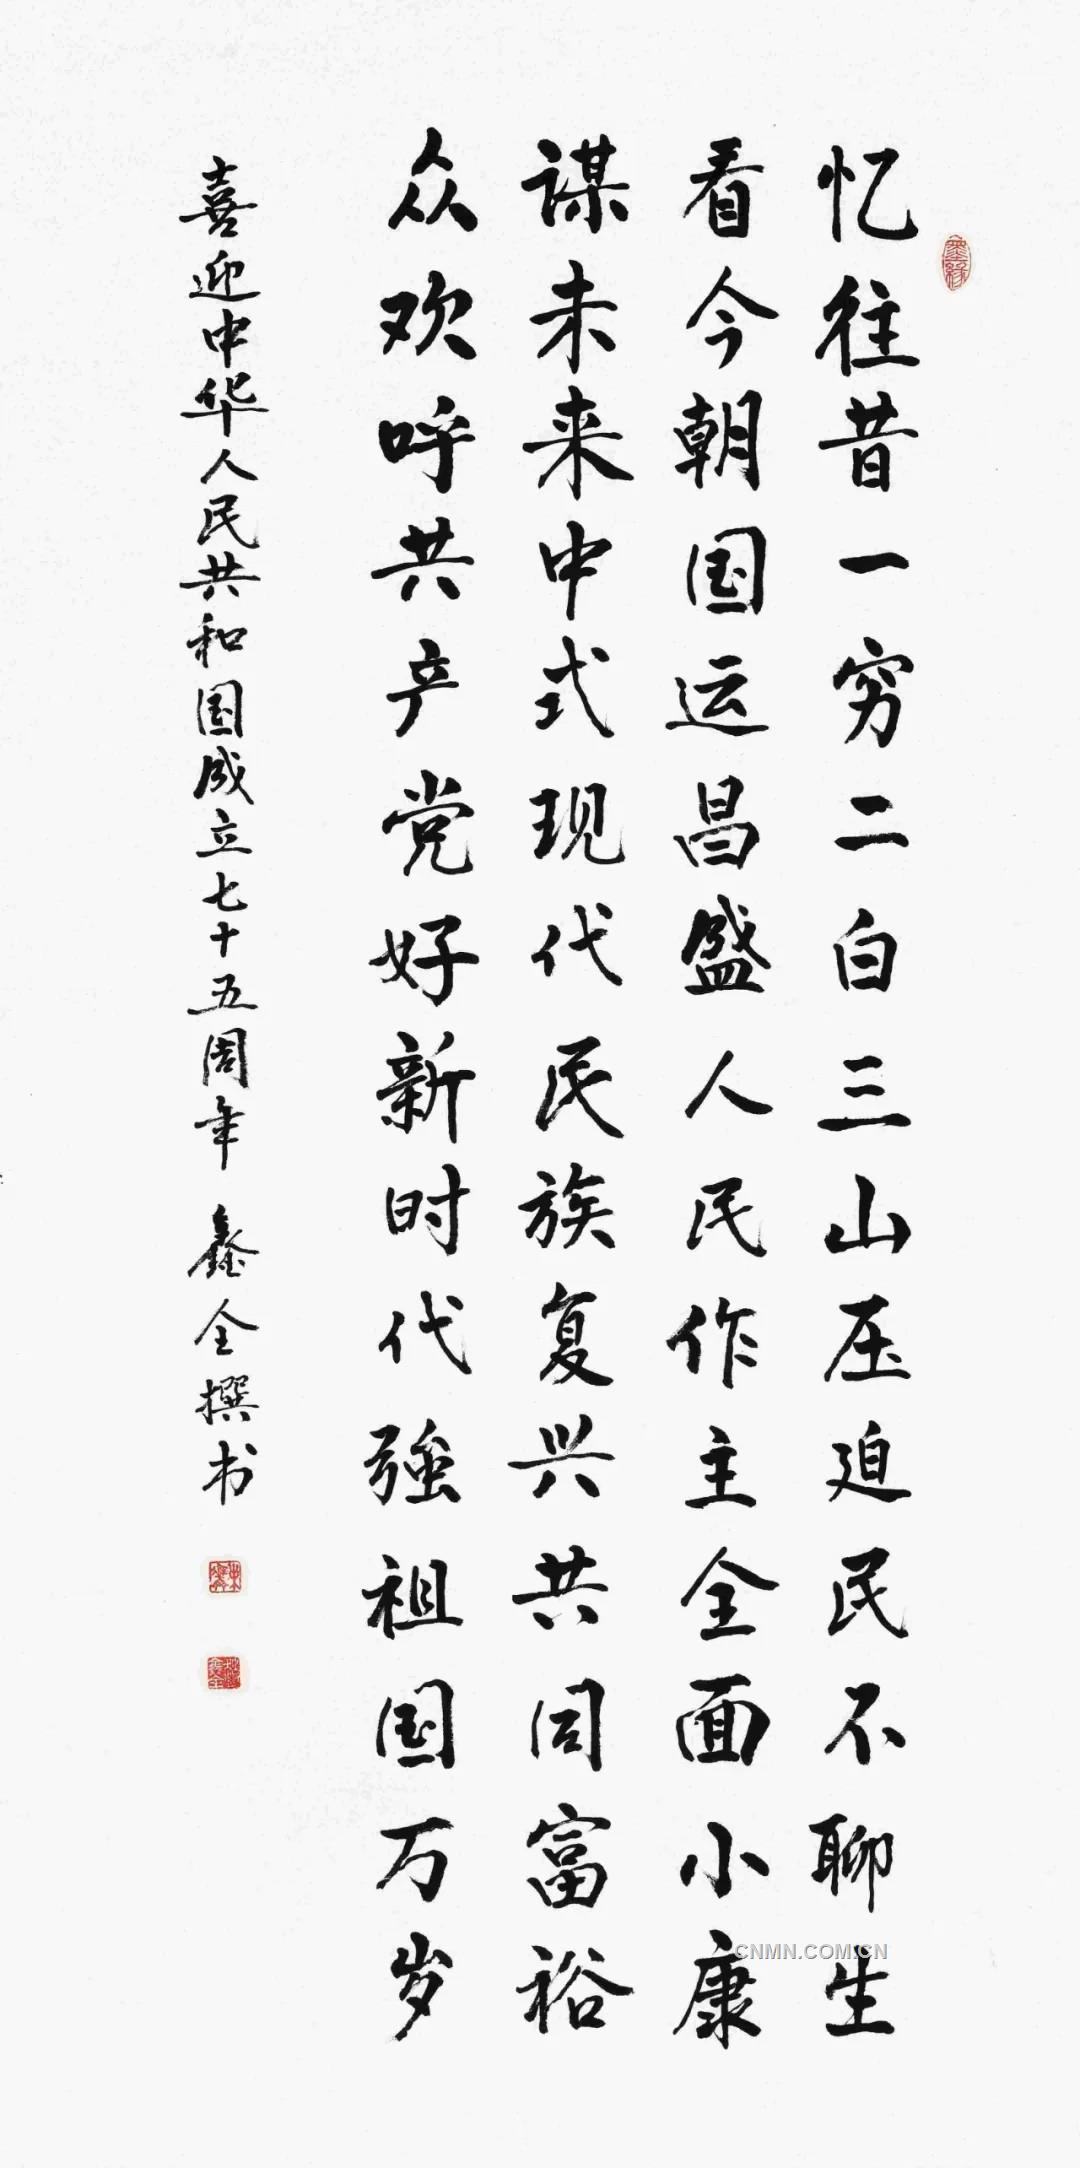 忆往昔一穷二白三山压迫民不聊生
看今朝国运昌盛人民作主全面小康
谋未来中式现代民族复兴共同富裕
众欢呼共产党好新时代强祖国万岁
喜迎中华人民共和国成立七十五周年 鑫全撰书
CNMN.COM.CN